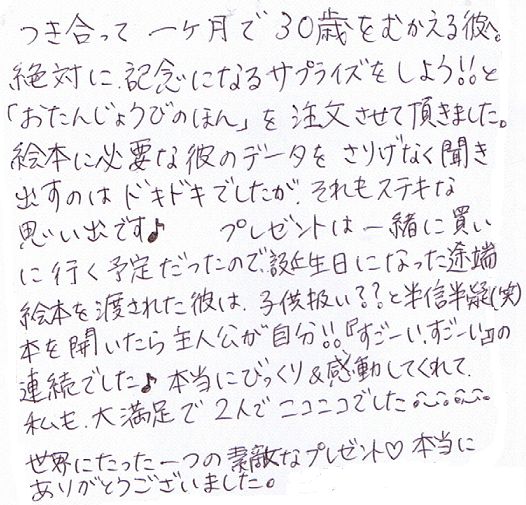 つき合って 一ケ月で 30歳をむかえる彼へ。
絶対に、記念になるサプライズをしよう!!と
「おたんじょうびのほん」を 注文させて頂きました。
絵本に必要な彼のデータを さりげなく聞き
出すのは ドキドキでしたが、それもステキな
思い出です♪ プレゼントは 一緒に買い
に行く予定だったので、誕生日になった途端
絵本を渡された彼は、子供扱い??と半信半疑(笑)
本を開いたら主人公が自分!!『すごーい、すごーい』の
連続でした♪ 本当にびっくり&感動してくれて、
私も、大満足で 2人でニコニコでした
世界にたった一つの素敵なプレゼント♡ 本当に
ありがとうございました。